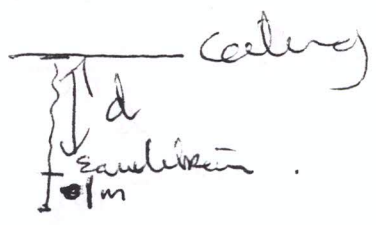 Ceiling
d
Equilibrium
m